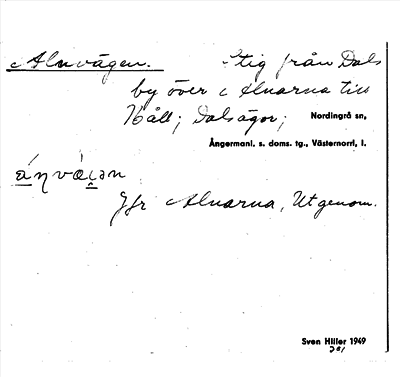 Alnvägen. Stig från Dals
by över Alnarna till
Håll; Dalsägor; Nordingrå sn,
Ångermanl. s. doms. tg., Västernorrl. l.
Jfr Alnarna, Utgenom.
Sven Hiller 1949